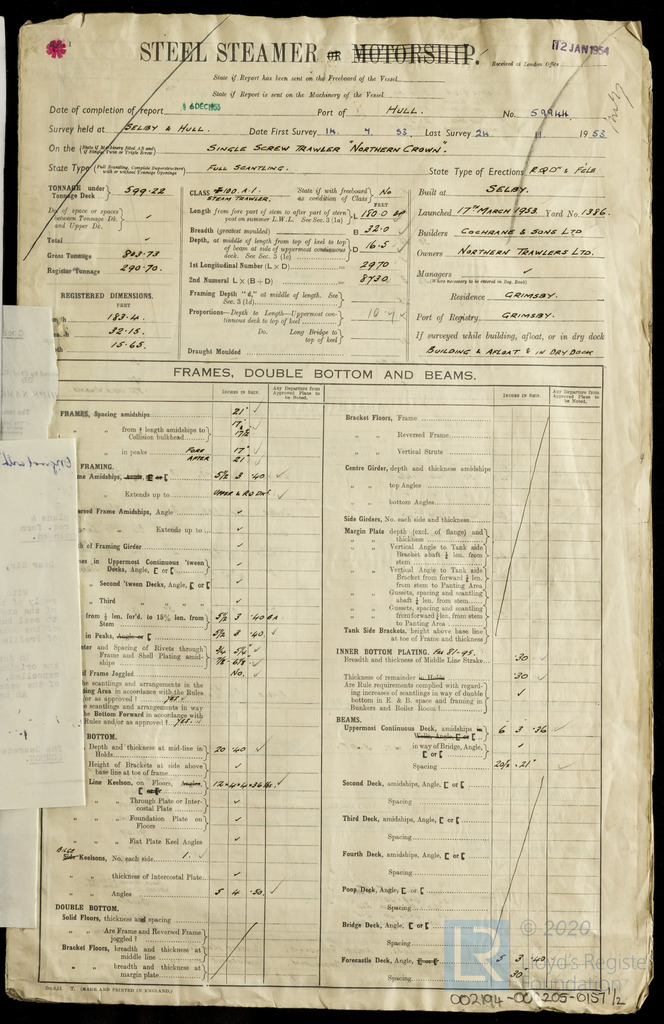 STEEL STEAMER OR MOTORSHIP.
12 JAN 1954
Received at London Office
State if Report has been sent on the Freeboard of the Vessel
State if Report is sent on the Machinery of the Vessel
Date of completion of report 16 DEC 1953 Port of HULL. No. 59944
Survey held at SELBY & HULL. Date First Survey 14. 7. 53. Last Survey 24 11 1953
On the (State if Machinery fitted Aft and if Single, Twin or Triple Screw) SINGLE SCREW TRAWLER "NORTHERN CROWN".
State Type (Full Scantling, Complete Superstructure with or without Tonnage Openings) FULL SCANTLING. State Type of Erections R.QD & FCLE
TONNAGE under Tonnage Deck 599.22
Do. of space or spaces between Tonnage Dk. and Upper Dk. ✓
Total ✓
Gross Tonnage 803.73
Register Tonnage 290.70.
REGISTERED DIMENSIONS.
FEET
183.4.
32.15.
15.65.
CLASS 100.A.1. STEAM TRAWLER. State if with freeboard as condition of Class No
FEET
Length from fore part of stem to after part of stern post on summer L.W.L. See Sec. 3 (1a) L 180.0 BP
Breadth (greatest moulded) B 32.0
Depth, at middle of length from top of keel to top of beam at side of uppermost continuous deck. See Sec. 3 (1c) D 16.5
1st Longitudinal Number (L × D) 2970
2nd Numeral L × (B + D) 8730
Framing Depth "d," at middle of length. See Sec. 3 (1d)
Proportions—Depth to Length—Uppermost continuous deck to top of keel
Do. Long Bridge to top of keel
Draught Moulded
Built at SELBY.
Launched 17TH MARCH 1953. Yard No. 1386.
Builders COCHRANE & SONS LTD
Owners NORTHERN TRAWLERS LTD.
Managers ✓
(Where necessary to be entered in Reg. Book)
Residence GRIMSBY.
Port of Registry GRIMSBY.
If surveyed while building, afloat, or in dry dock
BUILDING & AFLOAT & IN DRY DOCK
FRAMES, DOUBLE BOTTOM AND BEAMS.
INCHES IN SHIP. Any Departure from Approved Plans to be Noted.
INCHES IN SHIP. Any Departure from Approved Plans to be Noted.
FRAMES, Spacing amidships 21" ✓
" " from ⅗ length amidships to Collision bulkhead
" " in peaks FORE 17" ✓
AFTER 21" ✓
FRAMING.
me Amidships, Angle, [ or [ 5½ 3 .40 ✓
Extends up to UPPER & R.QD DKS
Frame Amidships, Angle ✓
Extends up to ✓
of Framing Girder ✓
in Uppermost Continuous 'tween Decks, Angle, [ or [ ✓
" Second 'tween Decks, Angle, [ or [ ✓
" Third " " " ✓
from ⅗ len. for'd. to 15% len. from Stem 5½ 3 .40 BA
in Peaks, Angle or [ 5½ 3 .40.
and Spacing of Rivets through Frame and Shell Plating amidships
Frame Joggled No.
scantlings and arrangements in the ing Area in accordance with the Rules /or as approved? YES.
scantlings and arrangements in way the Bottom Forward in accordance with Rules and/or as approved? YES.
BOTTOM.
Depth and thickness at mid-line in Holds 20 .40 ✓
Height of Brackets at side above base line at toe of frame ✓
Line Keelson, on Floors, Angles, [ or [
" " Through Plate or Intercostal Plate ✓
" " Foundation Plate on Floors ✓
" " Flat Plate Keel Angles ✓
BILGE Side Keelsons, No. each side 1. ✓
" " thickness of Intercostal Plate ✓
" " Angles 5 4 .50 ✓
DOUBLE BOTTOM.
Solid Floors, thickness and spacing
" " Are Frame and Reversed Frame joggled?
Bracket Floors, breadth and thickness at middle line
" " breadth and thickness at margin plate
Bracket Floors, Frame
" " Reversed Frame
" " Vertical Struts
Centre Girder, depth and thickness amidships
" " top Angles
" " bottom Angles
Side Girders, No. each side and thickness
Margin Plate depth (excl. of flange) and thickness
" " Vertical Angle to Tank side Bracket abaft ¼ len. from stem
" " Vertical Angle to Tank side Bracket from forward ¼ len. from stem to Panting Area
" " Gussets, spacing and scantling abaft ¼ len. from stem
" " Gussets, spacing and scantling from forward ¼ len. from stem to Panting Area
Tank Side Brackets, height above base line at toe of Frame and thickness
INNER BOTTOM PLATING. FRS 81-95.
Breadth and thickness of Middle Line Strake .30 ✓
Thickness of remainder in Holds .30 ✓
Are Rule requirements complied with regarding increases of scantlings in way of double bottom in E. & B. space and framing in Bunkers and Boiler Room? ✓
BEAMS.
Uppermost Continuous Deck, amidships in Wells, Angle, [ or [ 6 3 .36 ✓
" " in way of Bridge, Angle, [ or [ ✓
Spacing 20½ .21" ✓
Second Deck, amidships, Angle, [ or [
Spacing
Third Deck, amidships, Angle, [ or [
Spacing
Fourth Deck, amidships, Angle, [ or [
Spacing
Poop Deck, Angle, [ or [
Spacing
Bridge Deck, Angle, [ or [
Spacing
Forecastle Deck, Angle, [ or [ 5 3 .40
Spacing 30"
(MADE AND PRINTED IN ENGLAND.)
LR © 2020
Lloyd's Register Foundation
002194-002205-0157 1/2